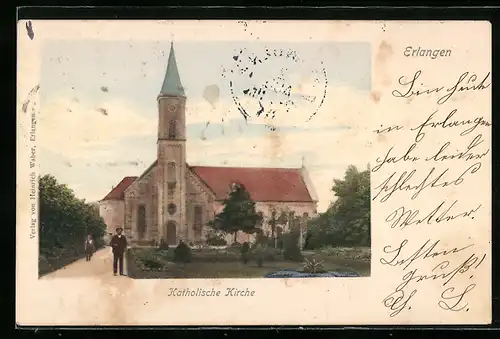 Erlangen
Bin heute
in Erlangen
habe leider
schlechtes
Wetter.
Besten
Gruß!
Ch. L.
Katholische Kirche
Verlag von Heinrich Weber, Erlangen